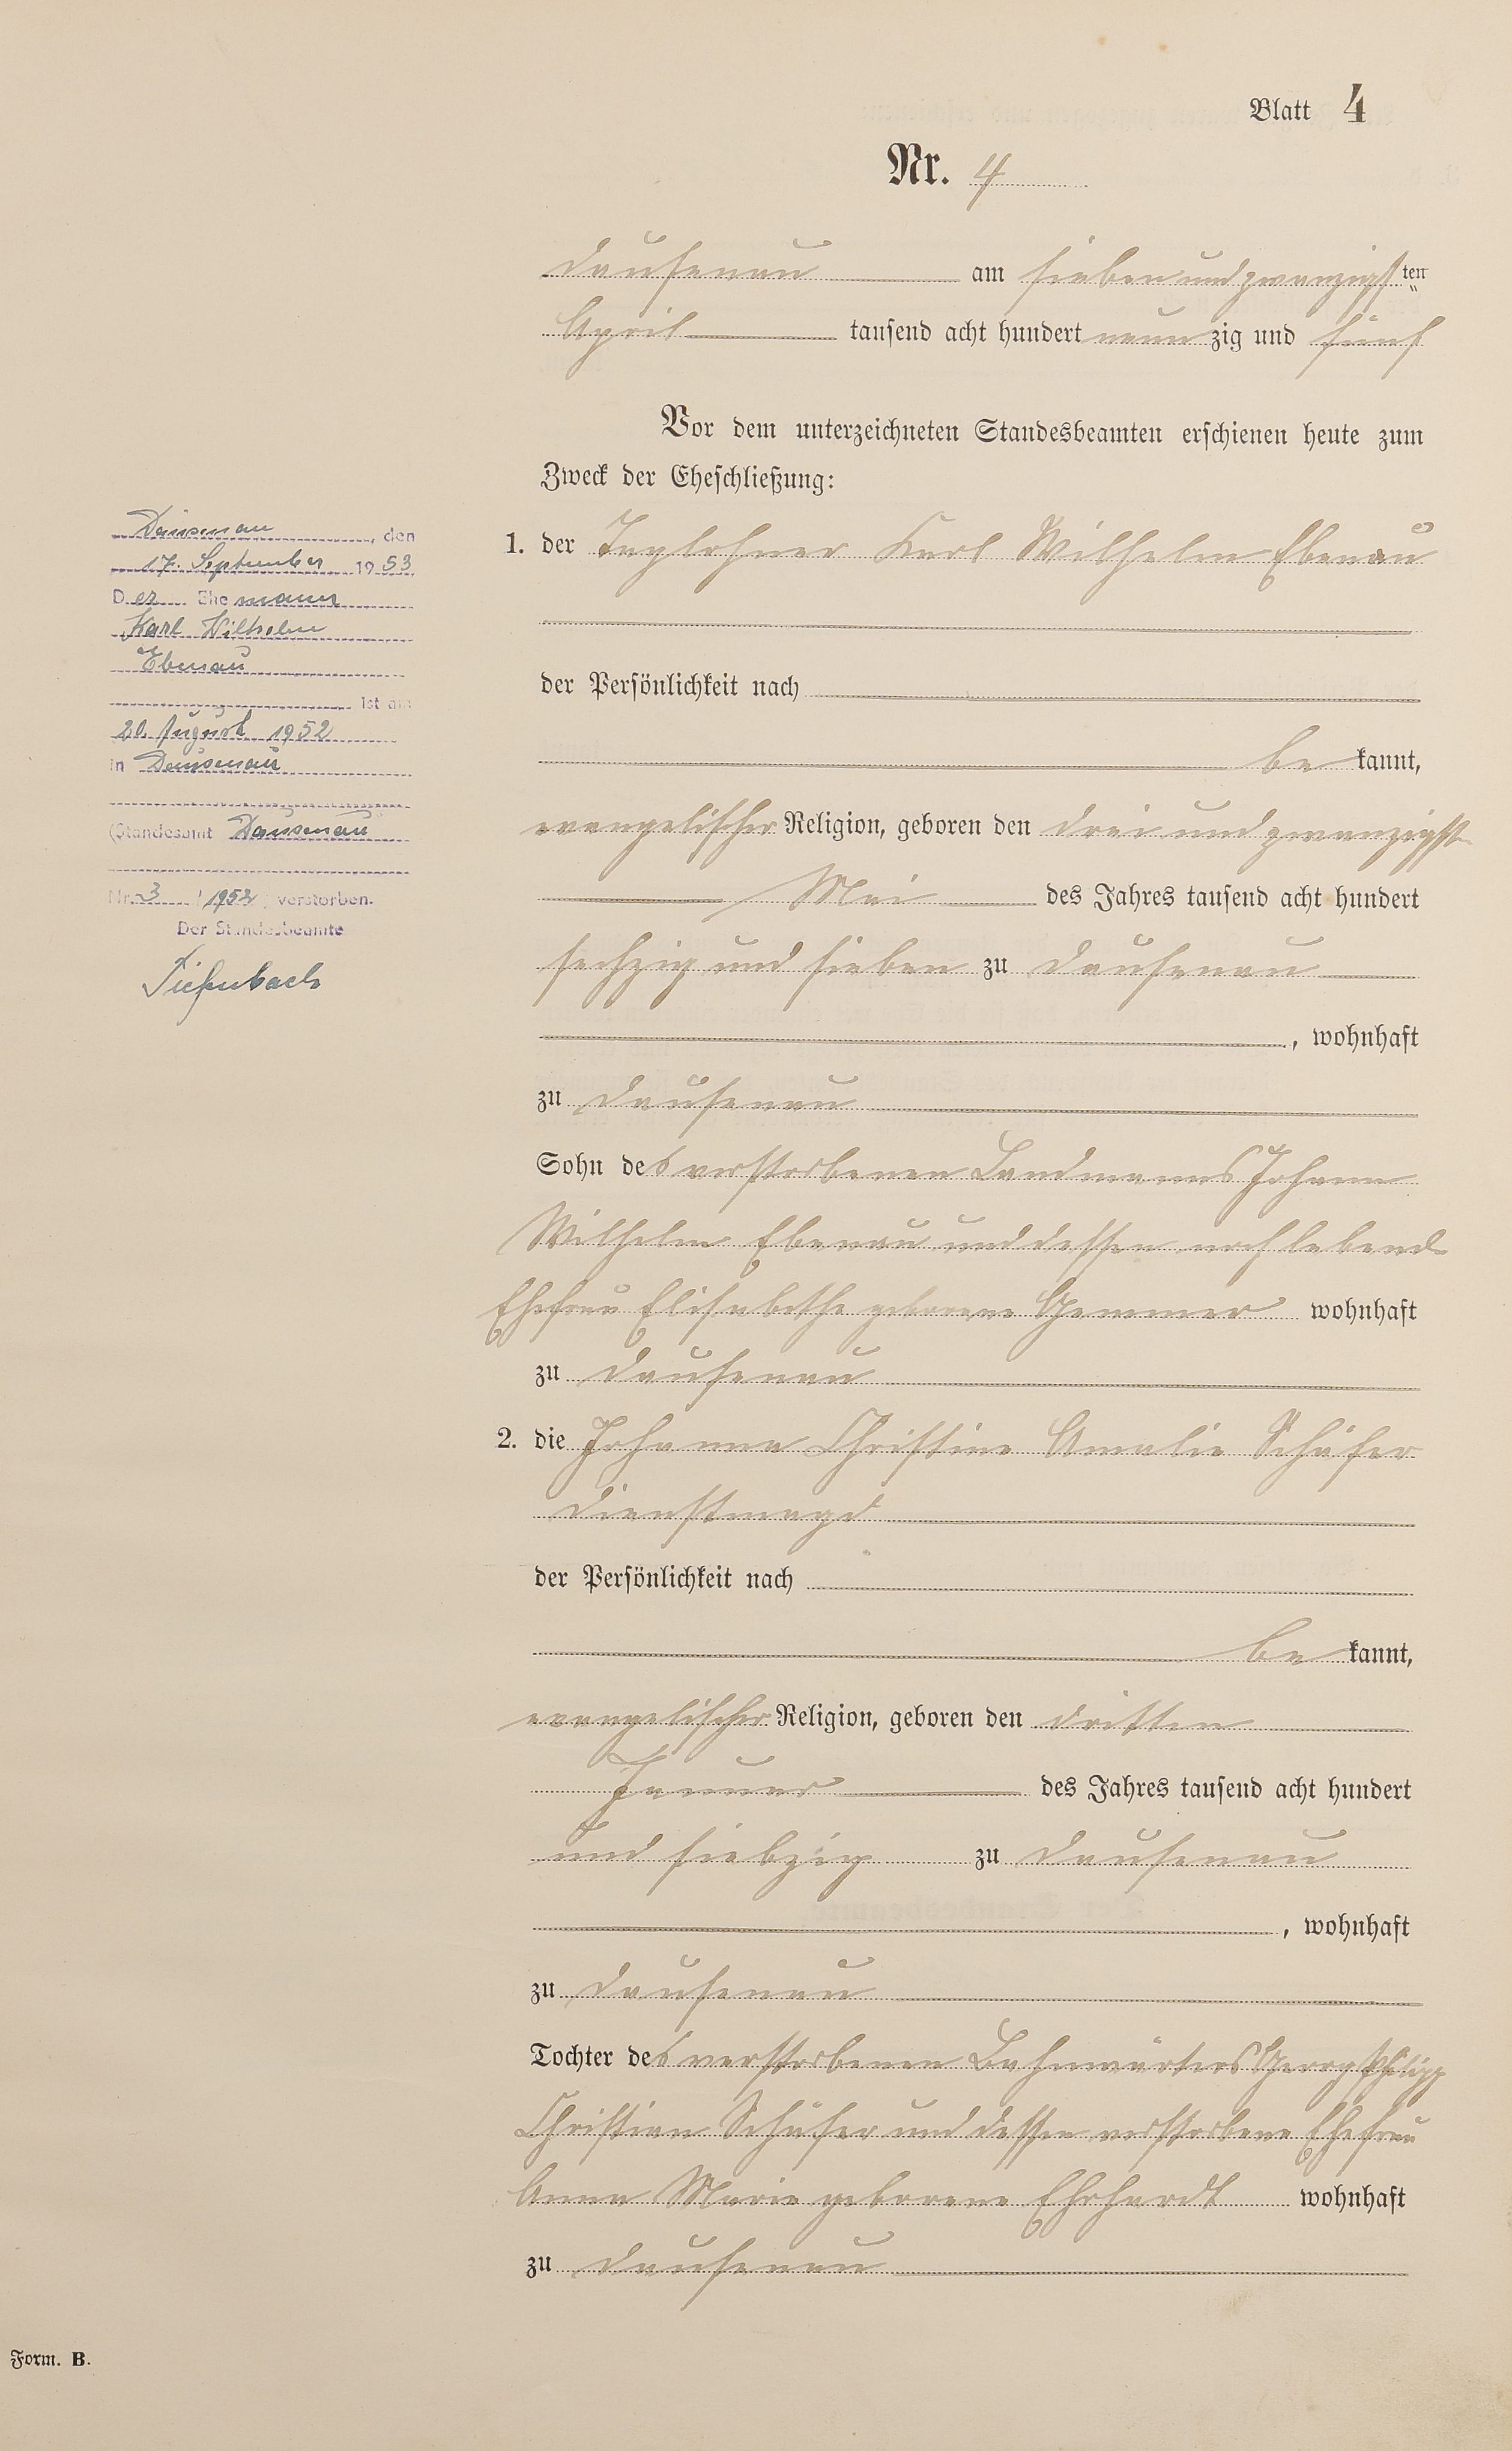 Blatt 4
Nr. 4
Dausenau am siebenundzwanzigsten
April tausend acht hundert neunzig und fünf
Vor dem unterzeichneten Standesbeamten erschienen heute zum
Zweck der Eheschließung:
1. der Taglohner Karl Wilhelm Ebenau
der Persönlichkeit nach
bekannt,
evangelischer Religion, geboren den dreiundzwanzigst
Mai des Jahres tausend acht hundert
sechzig und sieben zu Dausenau
, wohnhaft
zu Dausenau
Sohn des verstorbenen Landmanns Johann
Wilhelm Ebenau und dessen noch lebend
Ehefrau Elisabethe geborene Gemmer wohnhaft
zu Dausenau
2. die Johanna Christine Amalie Schäfer
Dienstmagd
der Persönlichkeit nach
bekannt,
evangelischer Religion, geboren den dritten
Januar des Jahres tausend acht hundert
und siebzig zu Dausenau
, wohnhaft
zu Dausenau
Tochter des verstorbenen Bahnwärters Georg Philipp
Christian Schäfer und dessen verstorbene Ehefrau
Anna Marie geborene Ehrhardt wohnhaft
zu Dausenau
Dausenau, den
17. September 1953
Der Ehemann
Karl Wilhelm
Ebenau
ist am
20. August 1952
in Dausenau
(Standesamt Dausenau
Nr. 3 / 1952) verstorben.
Der Standesbeamte
Tiefenbach
Form. B.